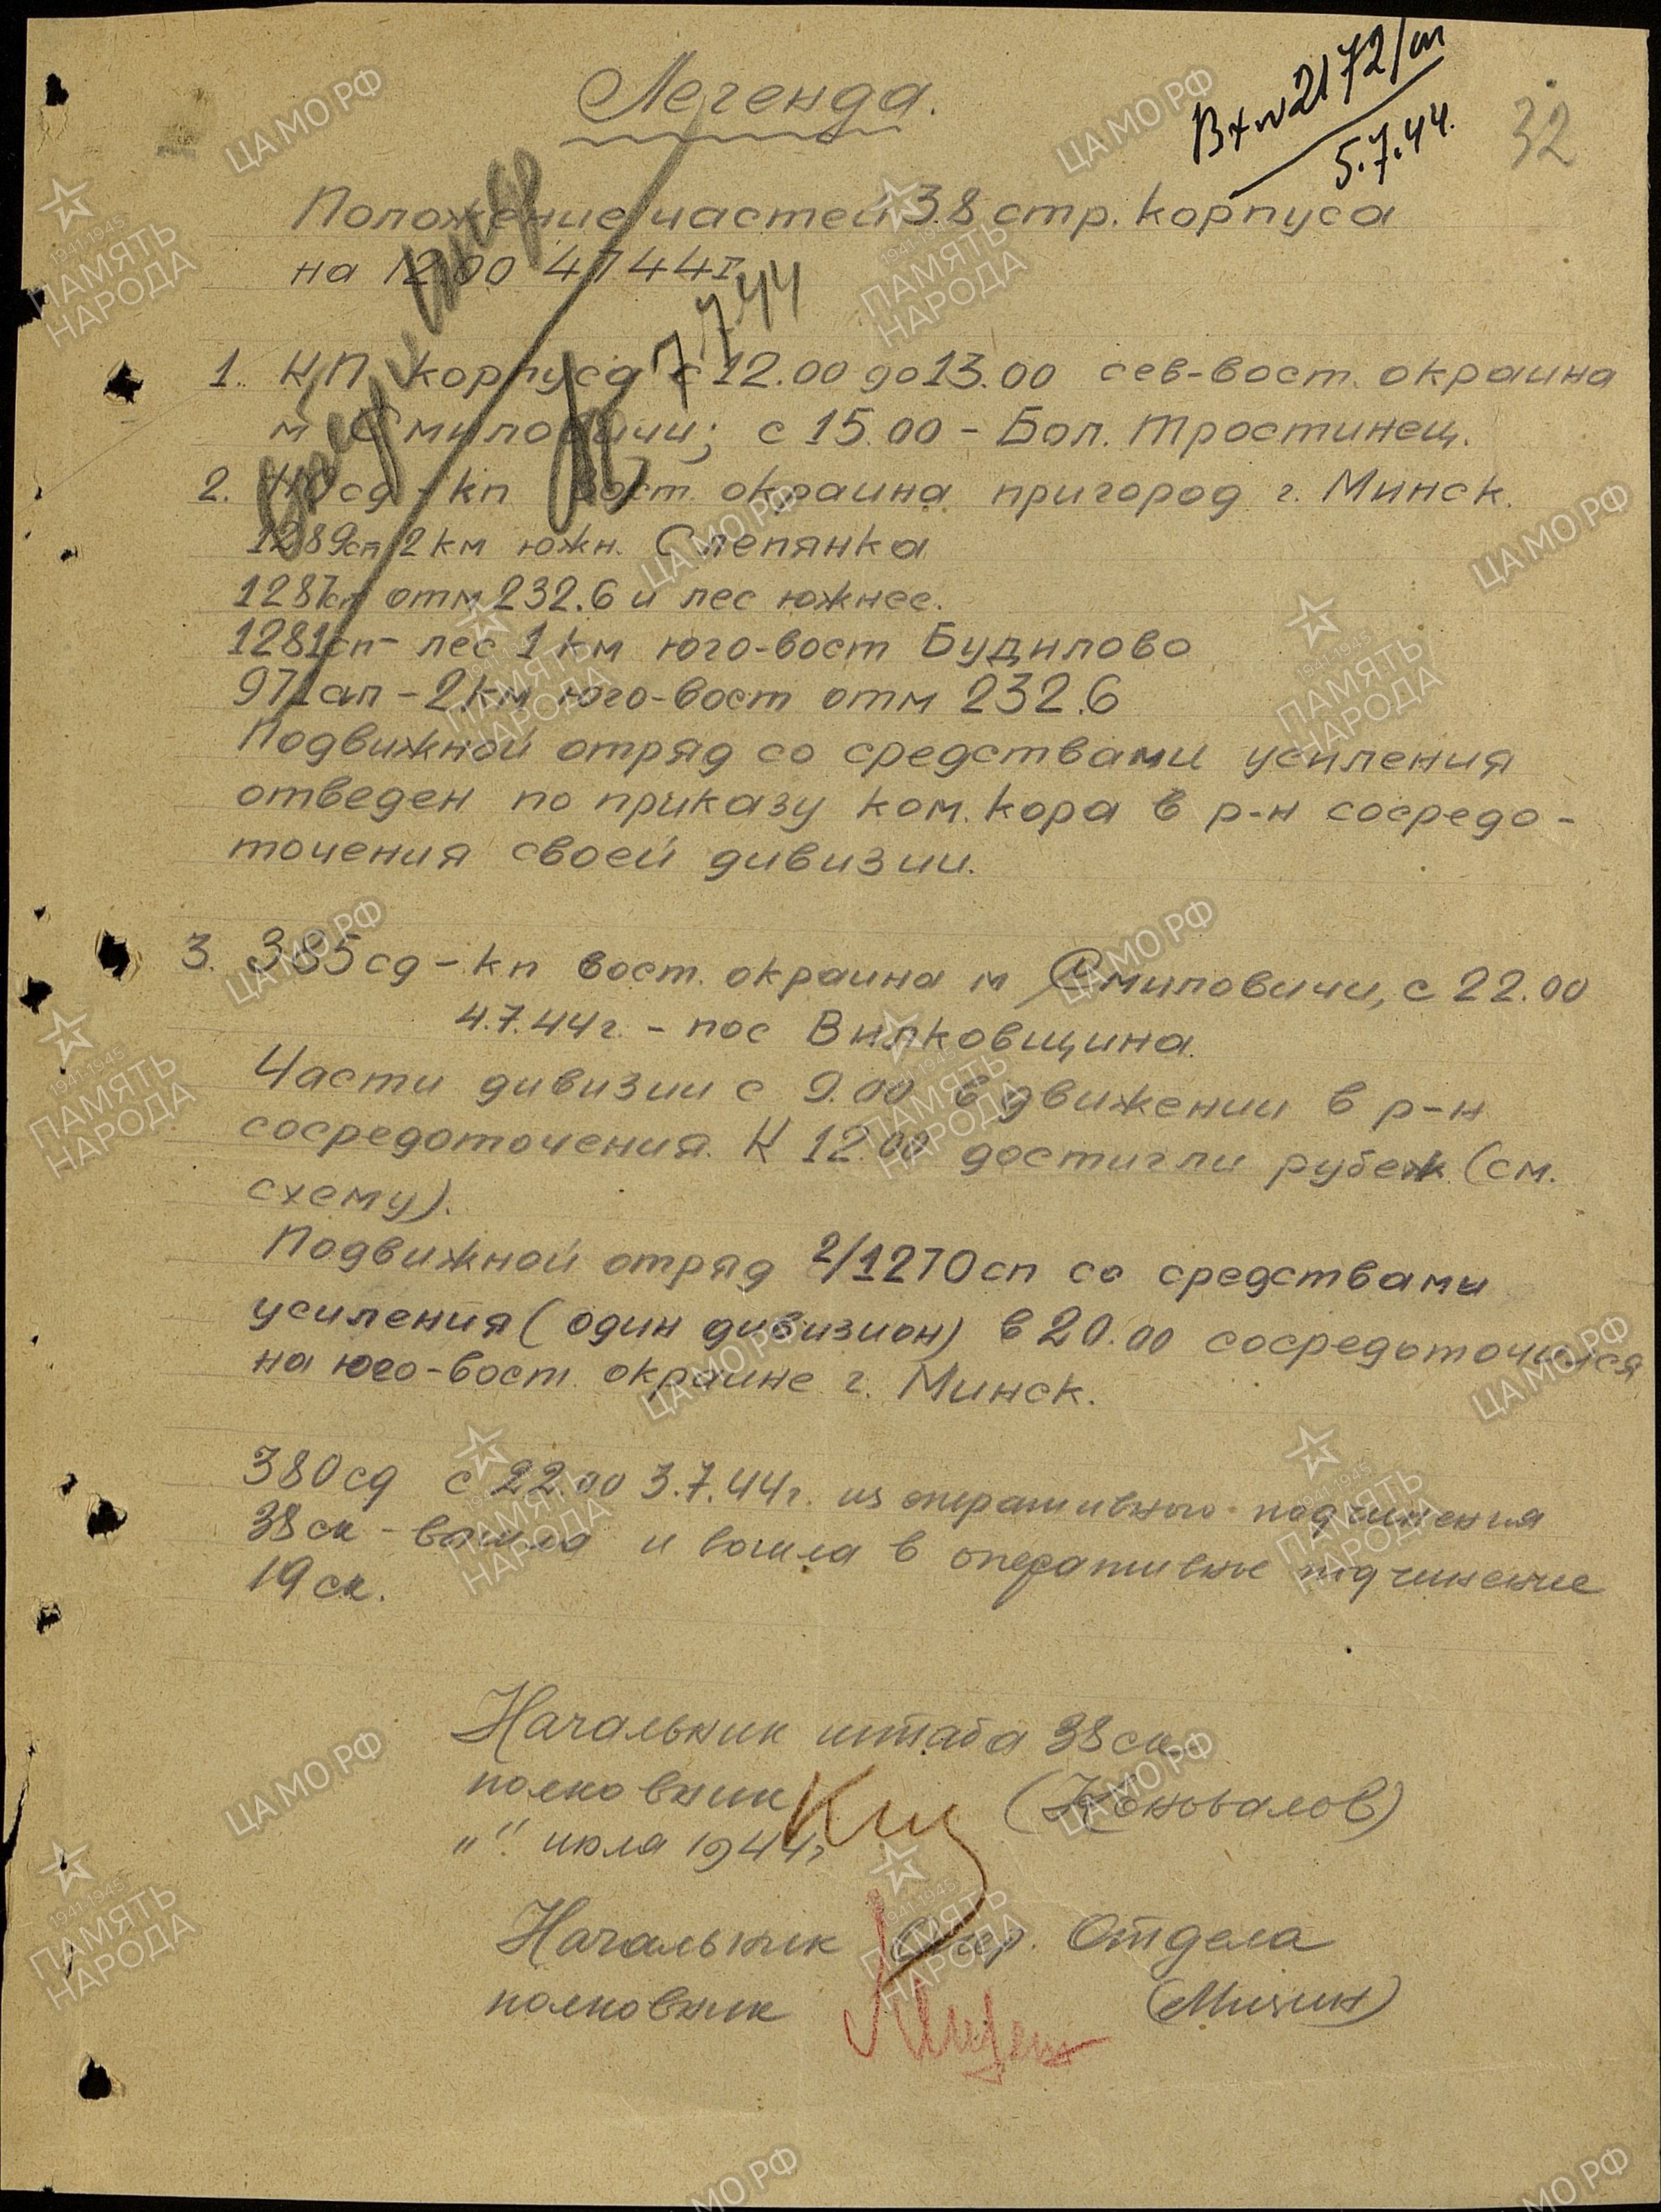 Легенда.
Вх № 2172/ш
5.7.44.
32
Положение частей 38 стр. корпуса
на 12.00 4 7 44г.
7 7 44
1. КП корпуса с 12.00 до 13.00 сев-вост. окраина
м Смиловичи; с 15.00 – Бол. Тростинец.
2. 110 сд – кп вост. окраина пригород г. Минск.
1289сп 2 км южн. Слепянка
1287сп отм 232.6 и лес южнее.
1281сп – лес 1 км юго-вост Будилово
971ап – 2 км юго-вост отм 232.6
Подвижной отряд со средствами усиления
отведен по приказу ком. кора в р-н сосредо-
точения своей дивизии.
3. 385 сд – кп вост. окраина м Смиловичи, с 22.00
4.7.44г. – пос Вилковщина.
Части дивизии с 9.00 в движении в р-н
сосредоточения. К 12.00 достигли рубеж (см.
схему).
Подвижной отряд 2/1270 сп со средствами
усиления (один дивизион) в 20.00 сосредоточился
на юго-вост. окраине г. Минск.
380 сд с 22.00 3.7.44г. из оперативного подчинения
38 ск – вышла и вошла в оперативное подчинение
19 ск.
Начальник штаба 38 ск
полковник (Коновалов)
" " июля 1944г
Начальник Опер. Отдела
полковник (Мизин)
ЦАМО РФ
1941-1945
ПАМЯТЬ
НАРОДА